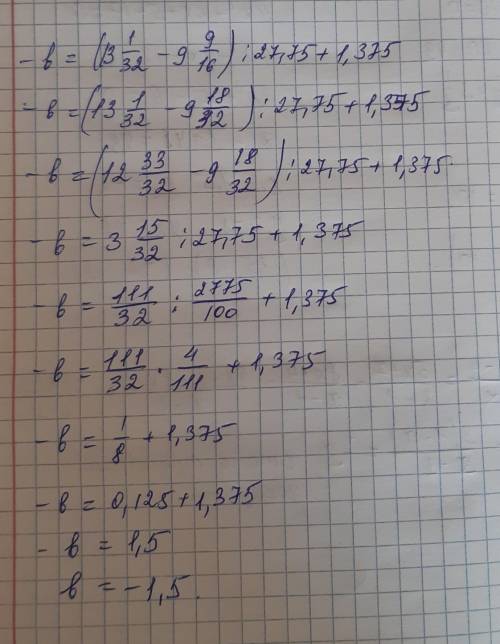 -b = (13 1/32 - 9 9/16) : 27,75 + 1,375
-b = (13 1/32 - 9 18/32) : 27,75 + 1,375
-b = (12 33/32 - 9 18/32) : 27,75 + 1,375
-b = 3 15/32 : 27,75 + 1,375
-b = 111/32 : 2775/100 + 1,375
-b = 111/32 · 4/111 + 1,375
-b = 1/8 + 1,375
-b = 0,125 + 1,375
-b = 1,5
b = -1,5.